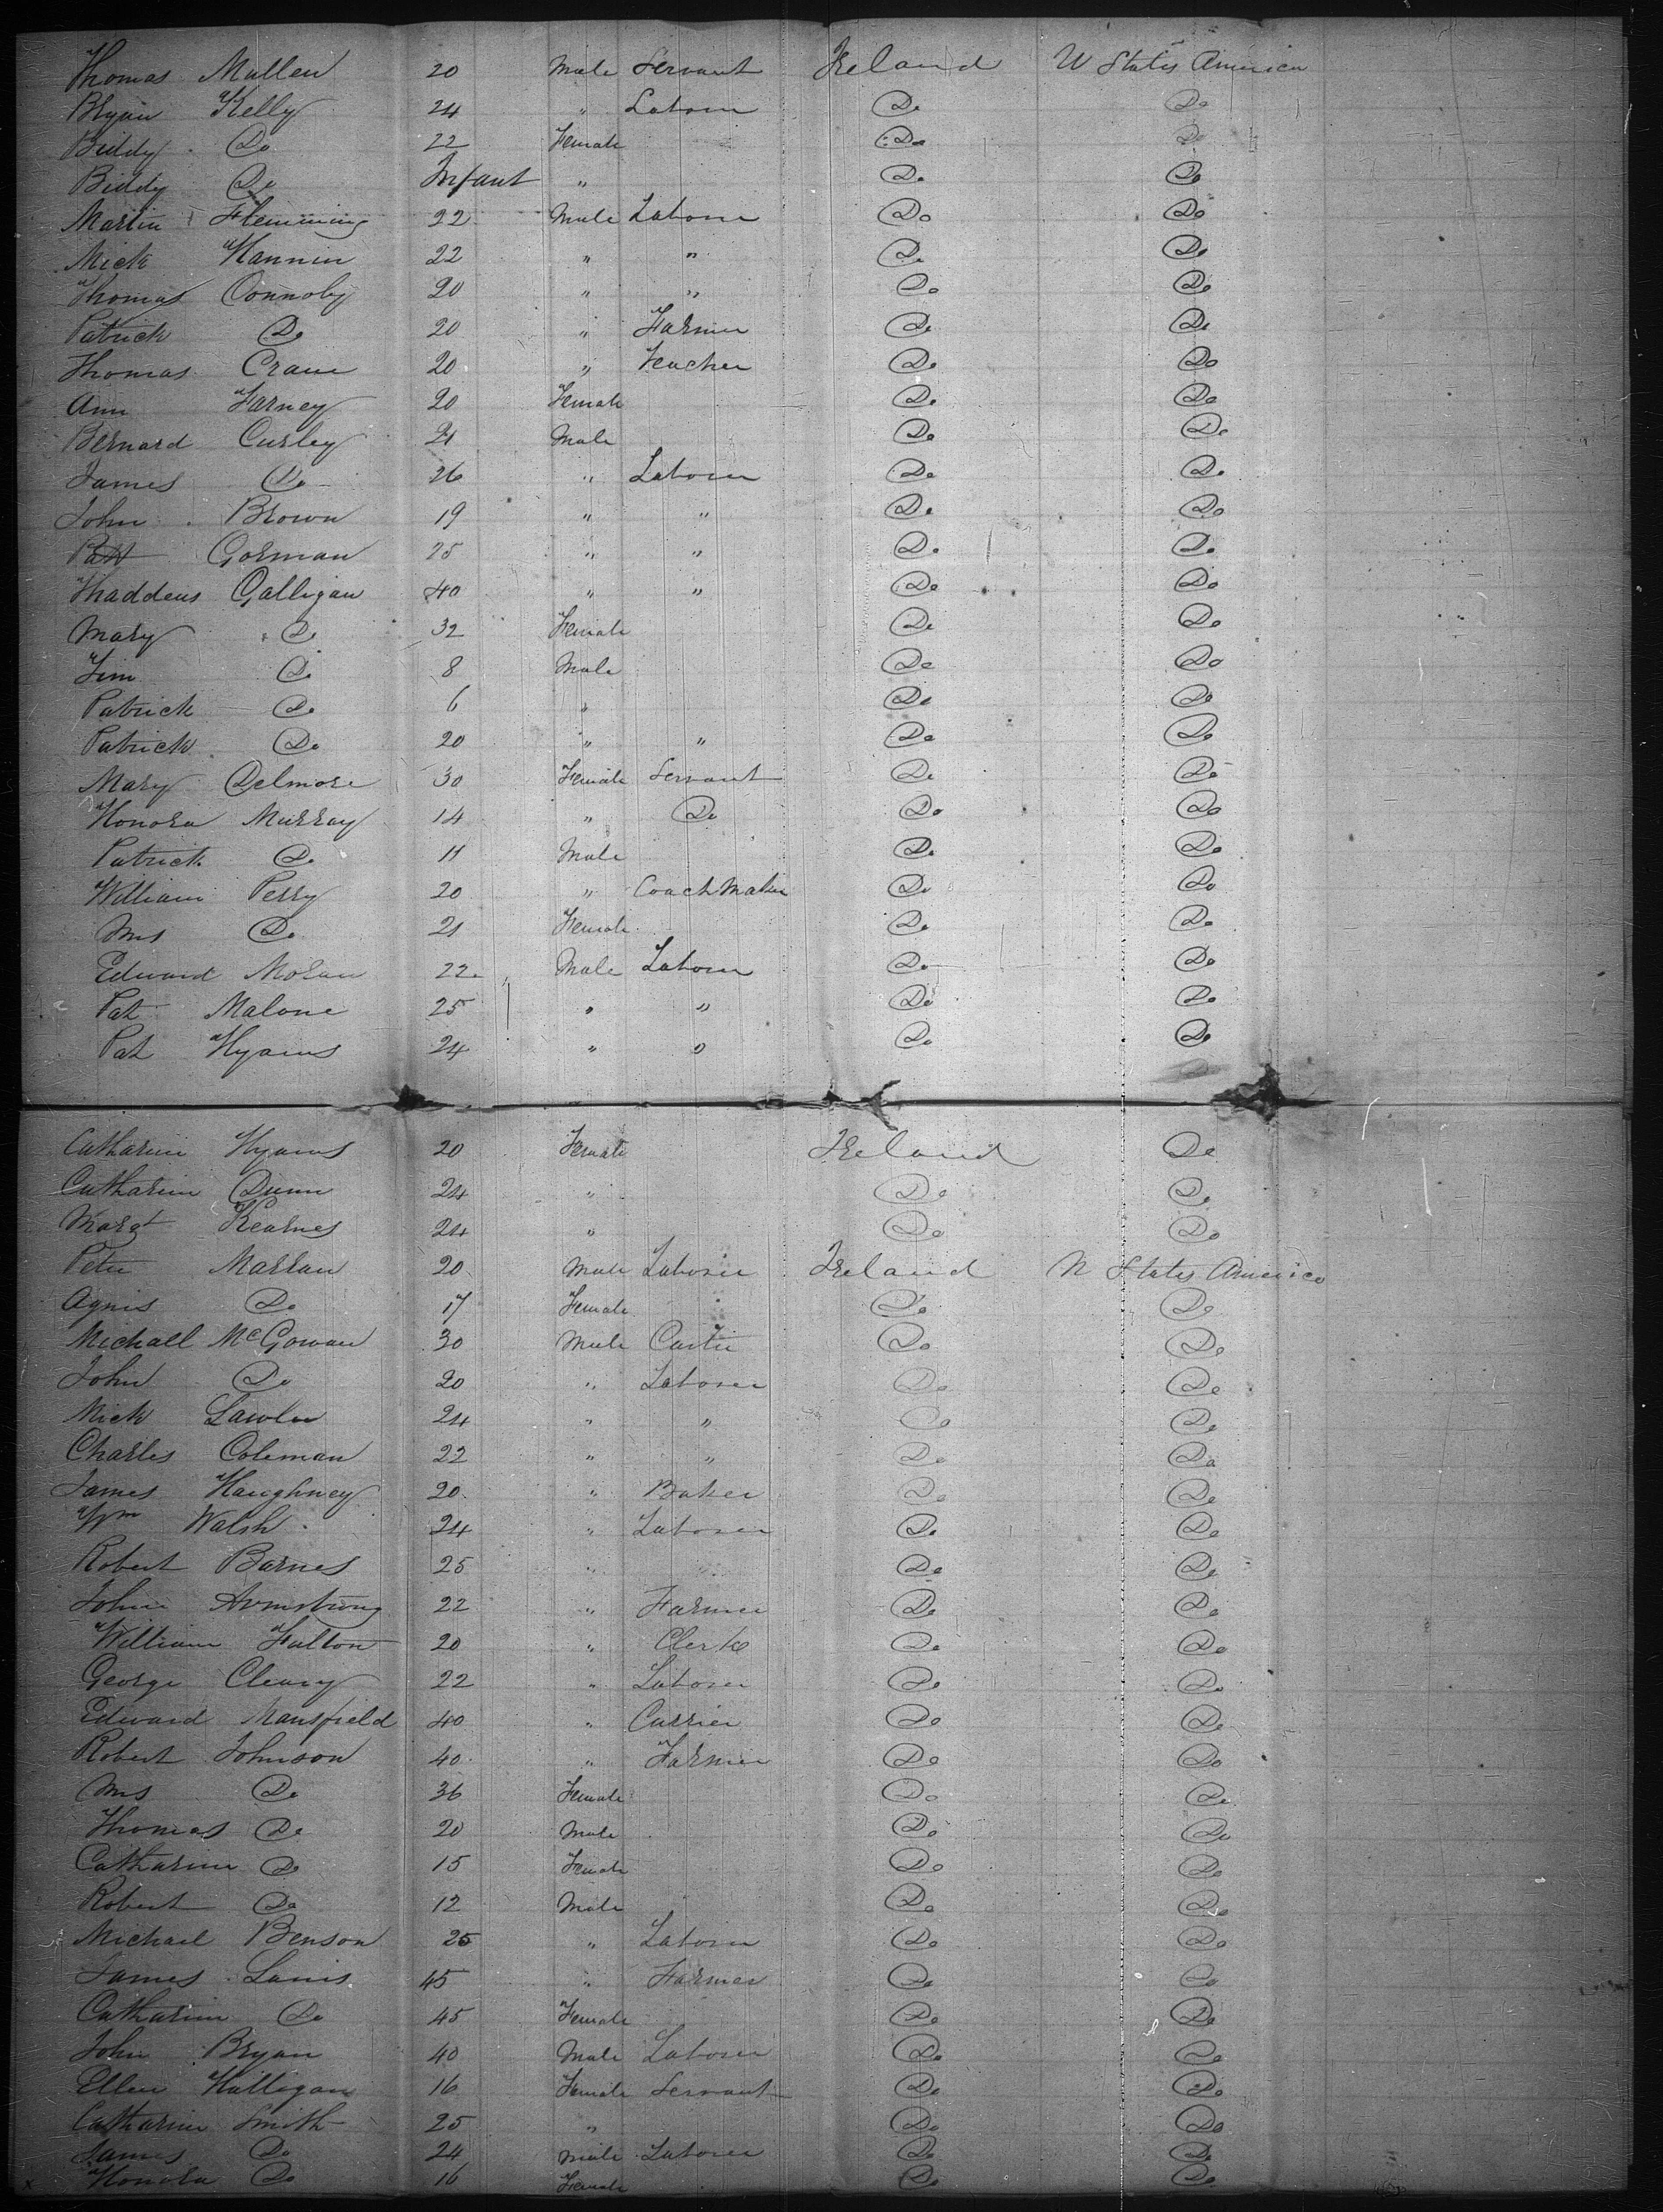 Thomas Mullen 20 Male Servant Ireland U States America
Bryan Kelly 24 " Laborer Do Do
Biddy Do 22 Female Do Do
Biddy Do Infant " Do Do
Martin Flemming 22 Male Laborer Do Do
Mick Hannin 22 " " Do Do
Thomas Connoly 20 " " Do Do
Patrick Do 20 " Farmer Do Do
Thomas Crane 20 " Teacher Do Do
Ann Farney 20 Female Do Do
Bernard Curley 21 Male Do Do
James Do 26 " Laborer Do Do
John Brown 19 " " Do Do
Pat Gorman 25 " " Do Do
Thaddeus Galligan 40 " " Do Do
Mary Do 32 Female Do Do
Tim Do 8 Male Do Do
Patrick Do 6 " Do Do
Patrick Do 20 " " Do Do
Mary Delmore 30 Female Servant Do Do
Honora Murray 14 " Do Do Do
Patrick Do 11 Male Do Do
William Perry 20 " Coach Maker Do Do
Mrs Do 21 Female Do Do
Edward Moran 22 Male Laborer Do Do
Pat Malone 25 " " Do Do
Pat Hyams 24 " " Do Do
Catharine Hyams 20 Female Ireland Do
Catharine Dunn 24 " Do Do
Margt Kearnes 24 " Do Do
Peter Marran 20 Male Laborer Ireland U States America
Agnis Do 17 Female Do Do
Michall McGowan 30 Male Do Do
John Do 20 " Laborer Do Do
Mick Lawlor 24 " " Do Do
Charles Coleman 22 " " Do Do
James Haughney 20 " Baker Do Do
Wm Walsh 24 " Laborer Do Do
Robert Barnes 25 " Do Do
John Armstrong 22 " Farmer Do Do
William Fulton 20 " Clerk Do Do
George Cleary 22 " Laborer Do Do
Edward Mansfield 40 " Currier Do Do
Robert Johnson 40 " Farmer Do Do
Mrs Do 36 Female Do Do
Thomas Do 20 Male Do Do
Catharine Do 15 Female Do Do
Robert Do 12 Male Do Do
Michael Benson 25 " Laborer Do Do
James Lanis 45 " Farmer Do Do
Catharine Do 45 Female Do Do
John Bryan 40 Male Laborer Do Do
Ellen Halligan 16 Female Servant Do Do
Catharine Smith 25 " Do Do
James Do 24 Male Laborer Do Do
Honora Do 16 Female Do Do